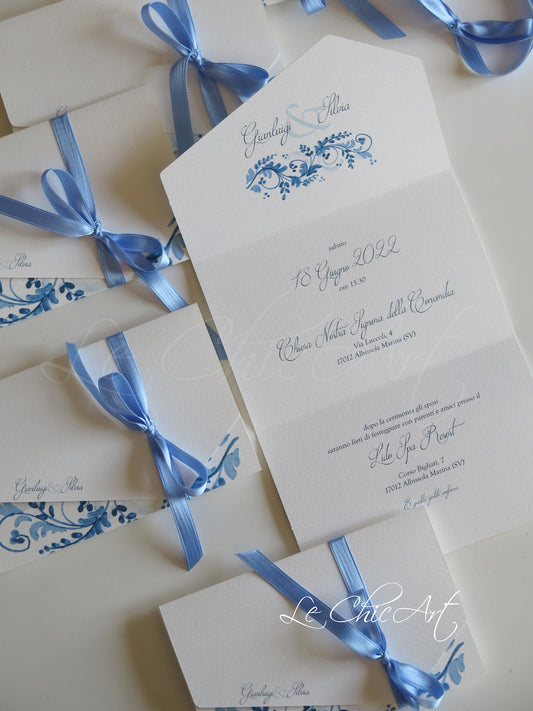 Gianluigi & Silvia
sabato
18 Giugno 2022
ore 15.30
Chiesa Nostra Signora della Concordia
Via Luccoli, 4
17012 Albissola Marina (SV)
dopo la cerimonia gli sposi
saranno lieti di festeggiare con parenti e amici presso il
Lido Spa Resort
Corso Bigliati, 7
17012 Albissola Marina (SV)
è gradita gentile conferma
& Silvia
Gianluigi & Silvia
Gianluigi & Silvia
Le Chic Art
Le Chic Art